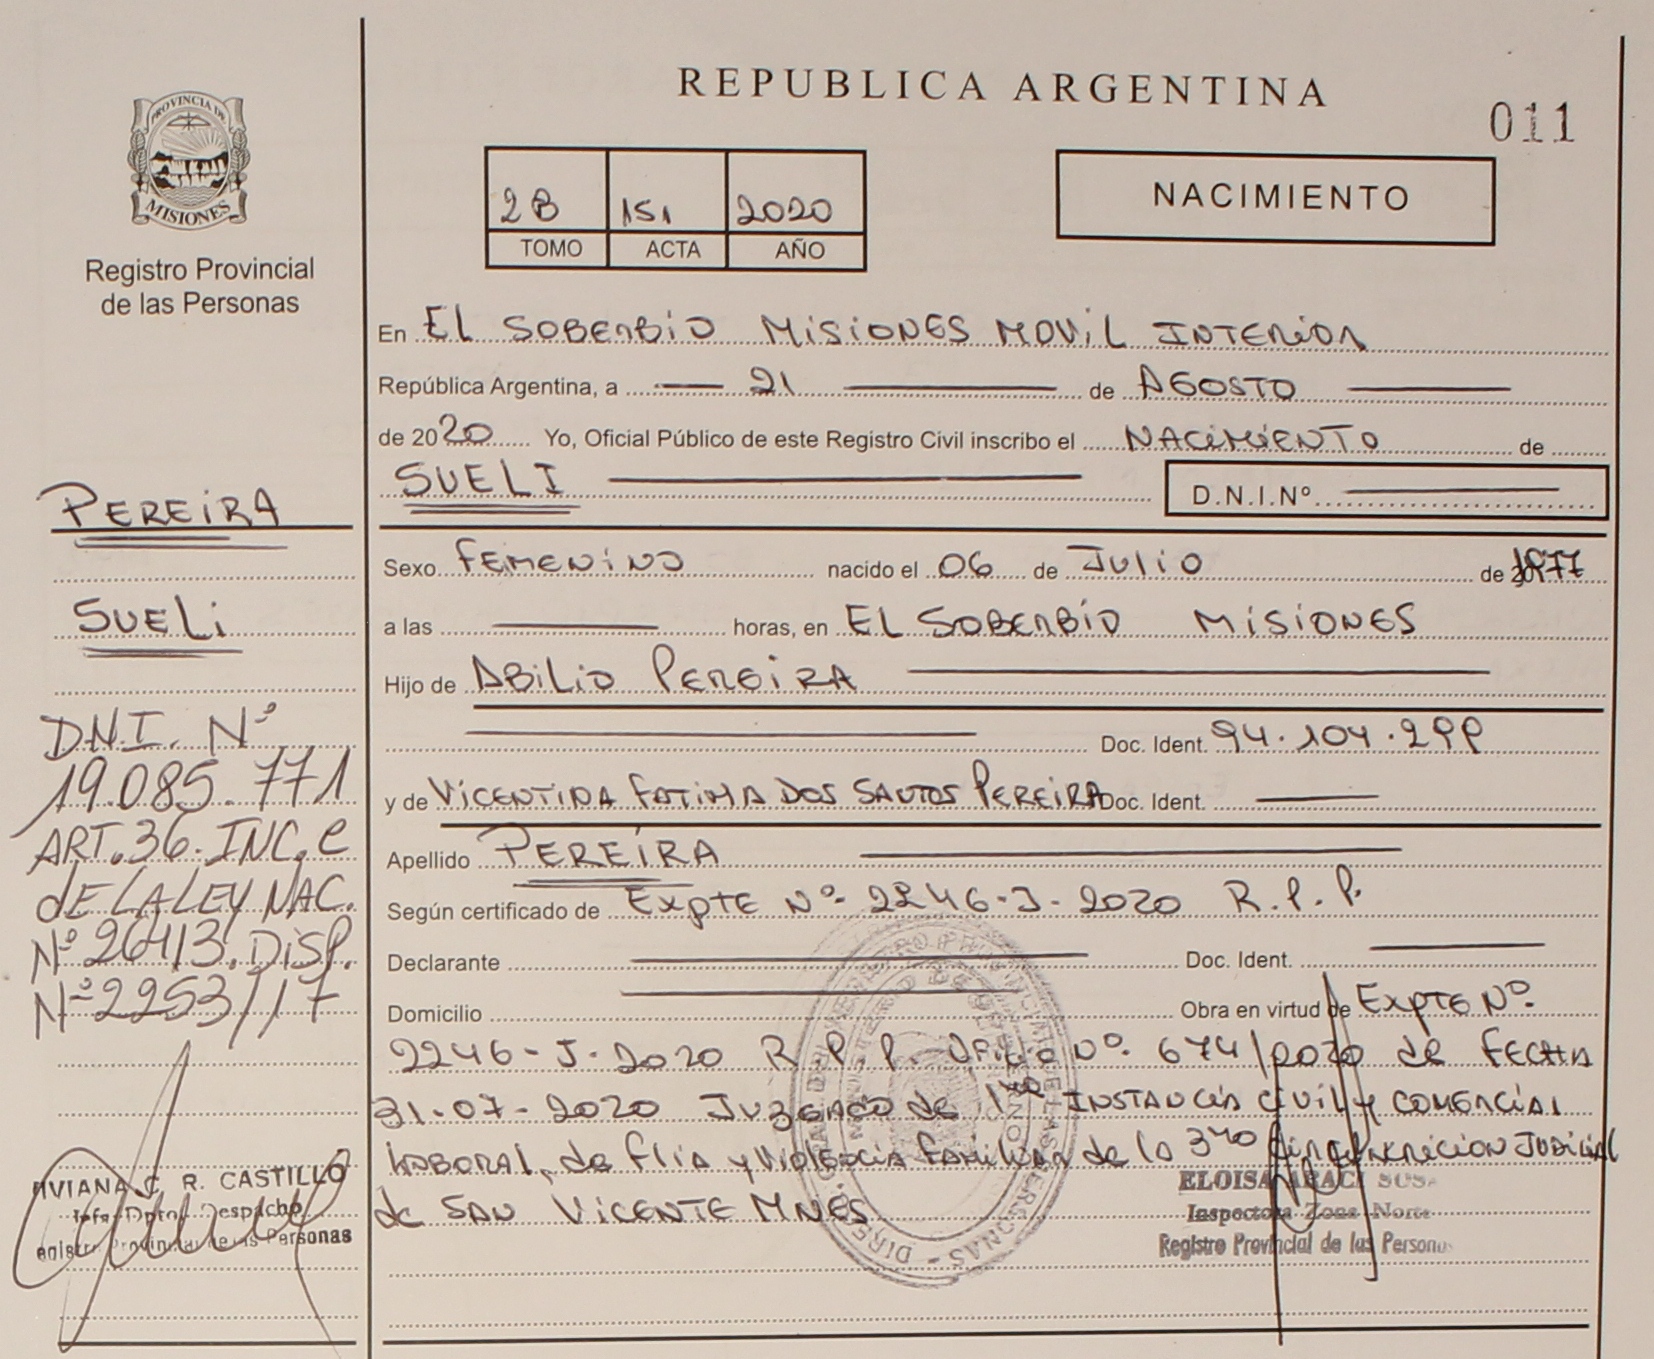 REPUBLICA ARGENTINA
011
PROVINCIA DE
MISIONES
Registro Provincial
de las Personas
2B 151 2020
TOMO ACTA AÑO
NACIMIENTO
En EL SOBERBIO MISIONES MOVIL INTERIOR
República Argentina, a 21 de AGOSTO
de 2020 Yo, Oficial Público de este Registro Civil inscribo el NACIMIENTO de
SUELI
D.N.I.Nº
Sexo FEMENINO nacido el 06 de JULIO de 1977
a las horas, en EL SOBERBIO MISIONES
Hijo de ABILIO PEREIRA
Doc. Ident. 94.104.299
y de VICENTINA FATIMA DOS SANTOS PEREIRA Doc. Ident.
Apellido PEREIRA
Según certificado de EXPTE Nº 2246-J-2020 R.P.P.
Declarante Doc. Ident.
Domicilio Obra en virtud de EXPTE Nº
2246-J-2020 R.P.P. OFICIO Nº 674/2020 de FECHA
31-07-2020 JUZGADO de 1ra INSTANCIA CIVIL y COMERCIAL
LABORAL, de FLIA y VIOLENCIA FAMILIAR de la 3ra CIRCUNSCRICION JUDICIAL
de SAN VICENTE MNES
PEREIRA
SUELI
DNI. Nº
19.085.771
ART.36.INC.e
de LA LEY NAC.
Nº 26413.DISP.
Nº 2253/17
VIVIANA C. R. CASTILLO
Jefa Dpto. Despacho
Registro Provincial de las Personas
ELOISA ARACI SOSA
Inspectora Zona Norte
Registro Provincial de las Personas